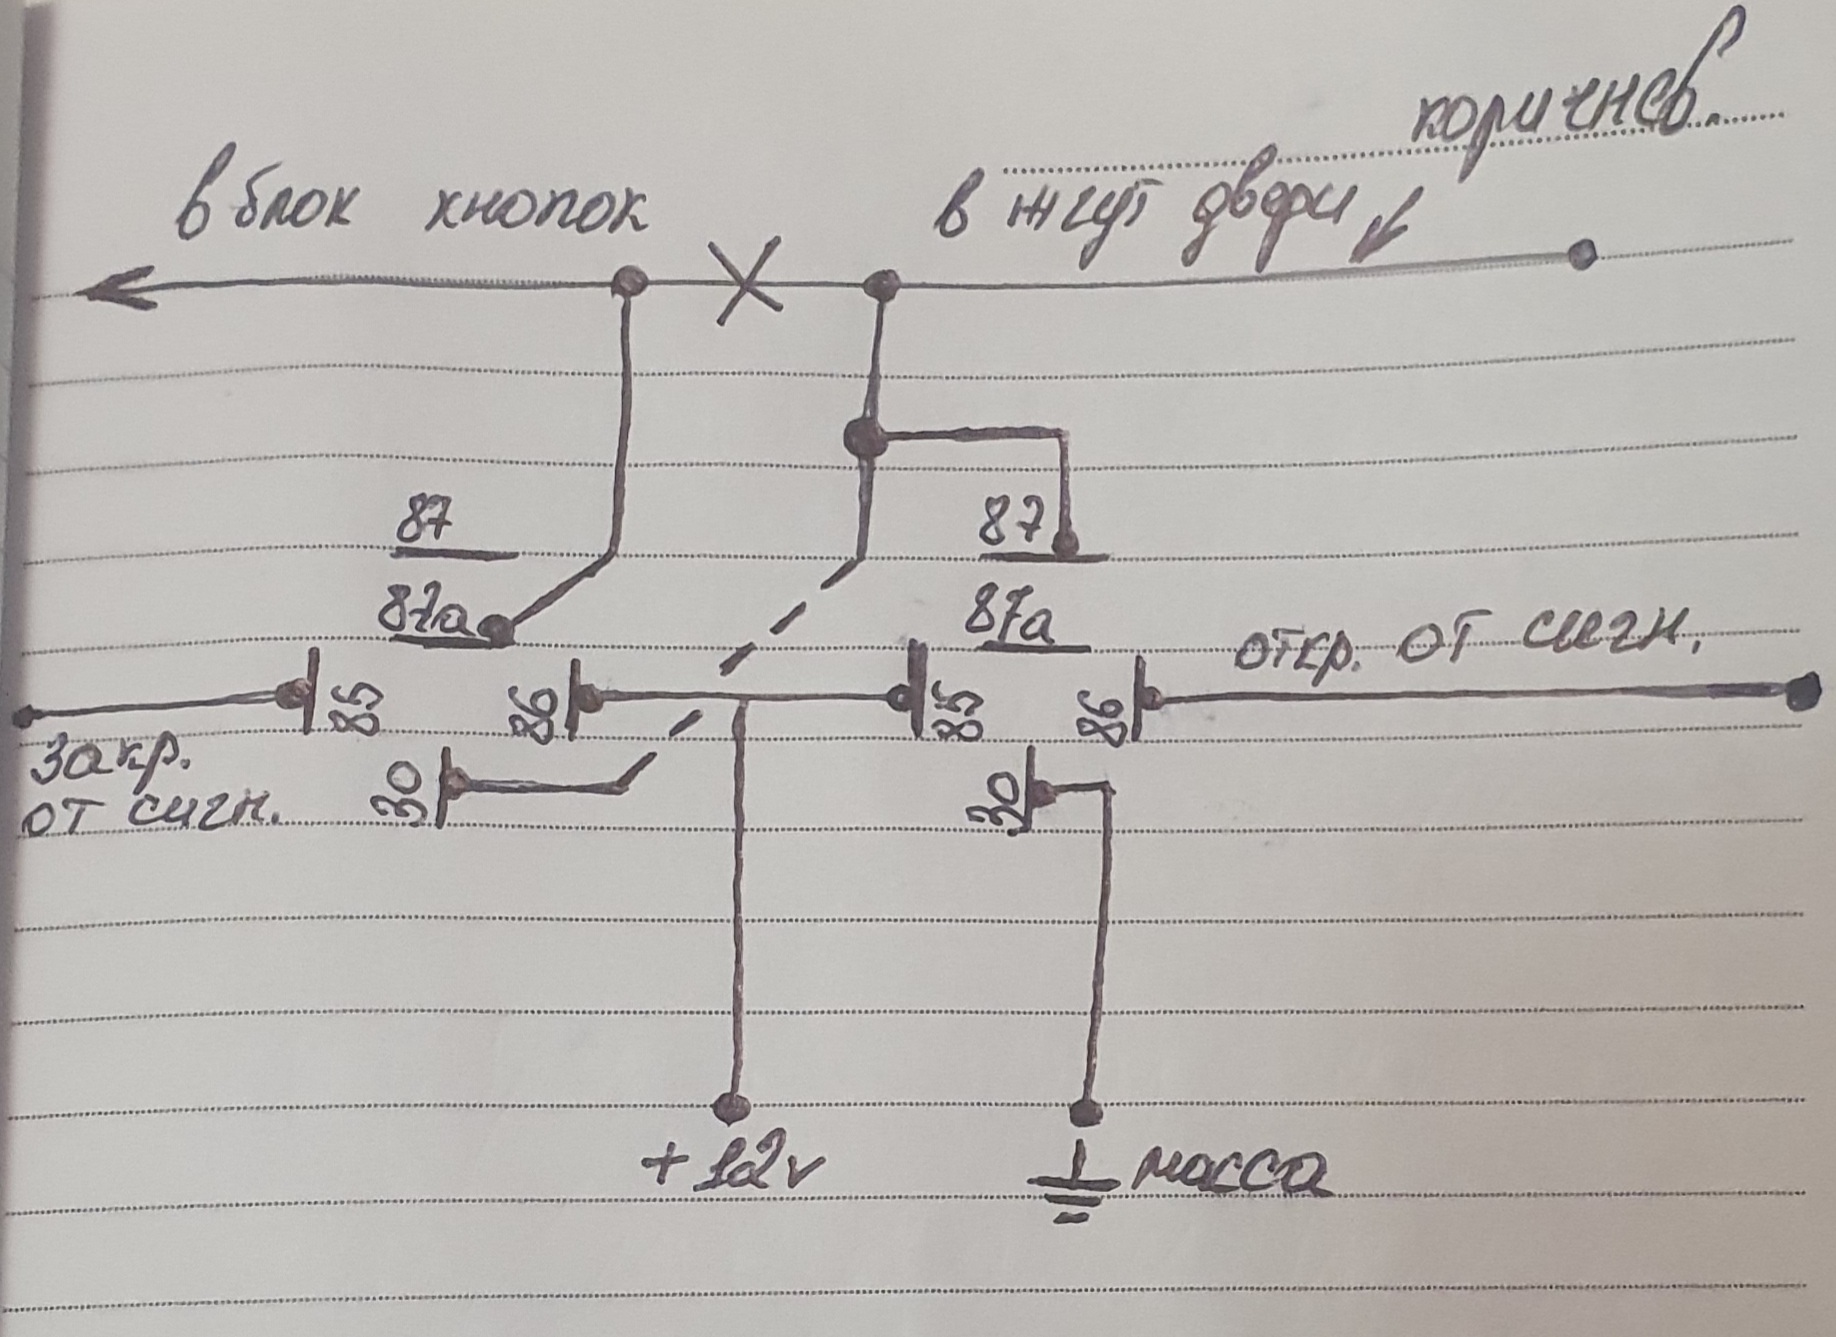 коричнев.
в блок кнопок в жгут двери
87 87
87а 87а
откр. от сигн.
85 86 85 86
закр.
от сигн.
30 30
+12v масса